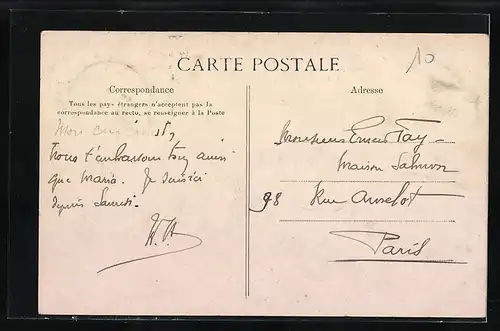 10
CARTE POSTALE
Correspondance
Tous les pays étrangers n'acceptent pas la
correspondance au recto, se renseigner à la Poste
Mon
Nous t'embrassons ainsi
que Maria. Je suis ici
depuis Samedi.
Adresse
Monsieur Ernest Fay
Maison
98 Rue Amelot
Paris